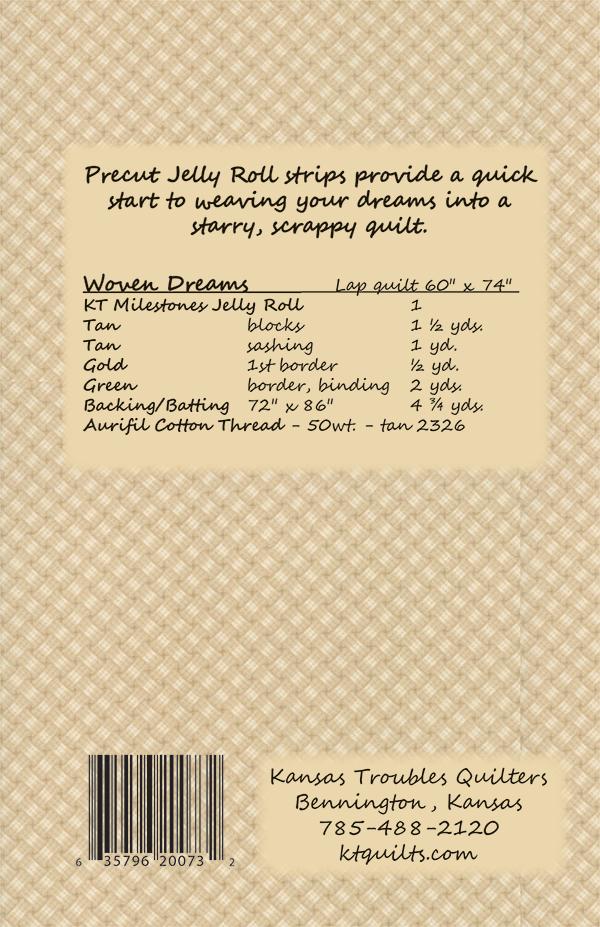 Precut Jelly Roll strips provide a quick
start to weaving your dreams into a
starry, scrappy quilt.
Woven Dreams Lap quilt 60" x 74"
KT Milestones Jelly Roll 1
Tan blocks 1 ½ yds.
Tan sashing 1 yd.
Gold 1st border ½ yd.
Green border, binding 2 yds.
Backing/Batting 72" x 86" 4 ¾ yds.
Aurifil Cotton Thread - 50wt. - tan 2326
Kansas Troubles Quilters
Bennington, Kansas
785-488-2120
ktquilts.com
6 35796 20073 2